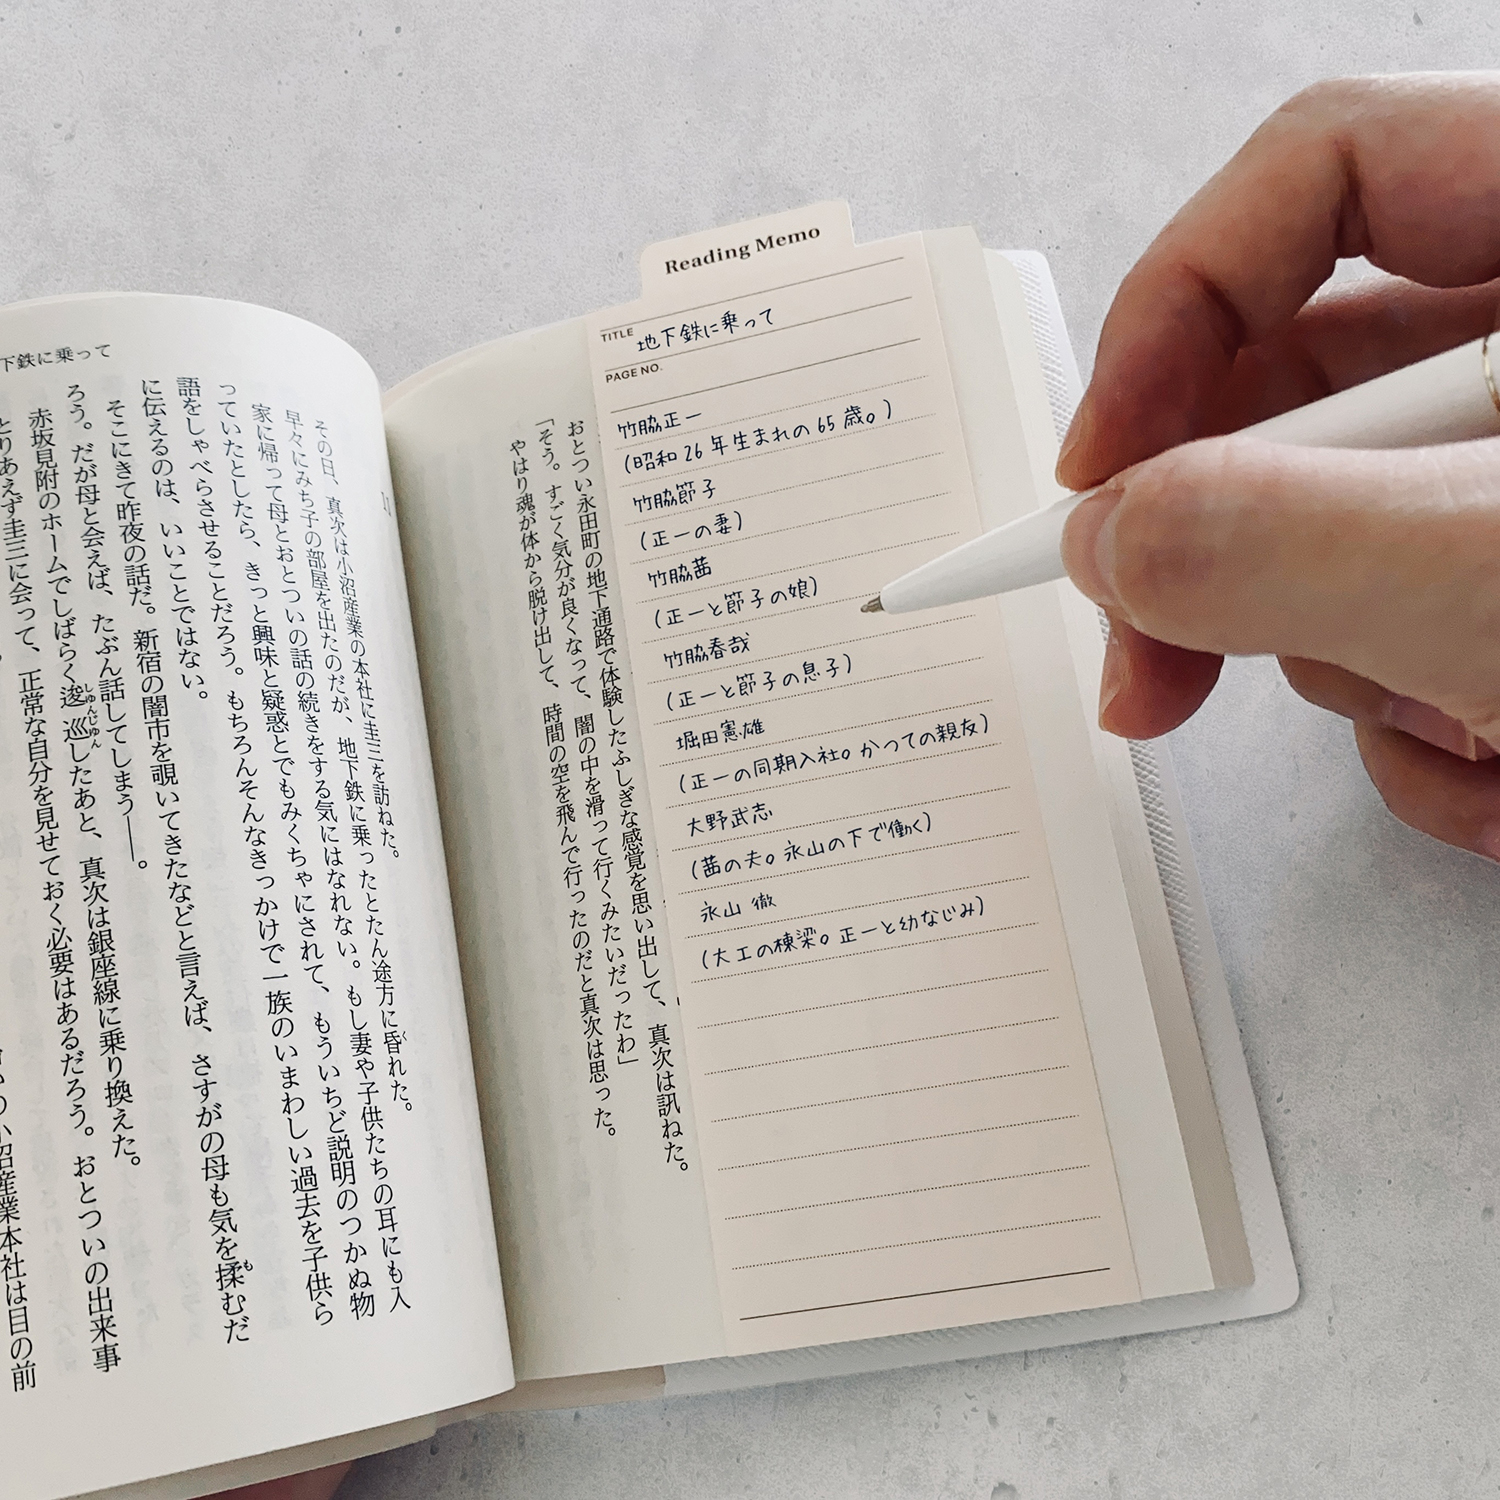 Reading Memo
TITLE 地下鉄に乗って
PAGE NO.
竹脇正一
(昭和26年生まれの65歳。)
竹脇節子
(正一の妻)
竹脇茜
(正一と節子の娘)
竹脇春哉
(正一と節子の息子)
堀田憲雄
(正一の同期入社。かつての親友)
大野武志
(茜の夫。永山の下で働く)
永山 徹
(大工の棟梁。正一と幼なじみ)
おとつい永田町の地下通路で体験したふしぎな感覚を思い出して、真次は訊ねた。
「そう。すごく気分が良くなって、闇の中を滑って行くみたいだったわ」
やはり魂が体から脱け出して、時間の空を飛んで行ったのだと真次は思った。
下鉄に乗って
11
その日、真次は小沼産業の本社に圭三を訪ねた。
早々にみち子の部屋を出たのだが、地下鉄に乗ったとたん途方に昏れた。
家に帰って母とおとついの話の続きをする気にはなれない。もし妻や子供たちの耳にも入
っていたとしたら、きっと興味と疑惑とでもみくちゃにされて、もういちど説明のつかぬ物
語をしゃべらさせることだろう。もちろんそんなきっかけで一族のいまわしい過去を子供ら
に伝えるのは、いいことではない。
そこにきて昨夜の話だ。新宿の闇市を覗いてきたなどと言えば、さすがの母も気を揉むだ
ろう。だが母と会えば、たぶん話してしまう――。
赤坂見附のホームでしばらく逡巡したあと、真次は銀座線に乗り換えた。
とりあえず圭三に会って、正常な自分を見せておく必要はあるだろう。おとついの出来事
小沼産業本社は目の前